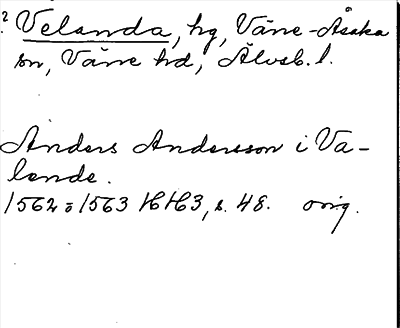 ? Velanda, hg, Väne-Åsaka
sn, Väne hd, Älvsb. l.
Anders Andersson i Va-
lende.
1562 ö 1563 HH3, s. 48. orig.